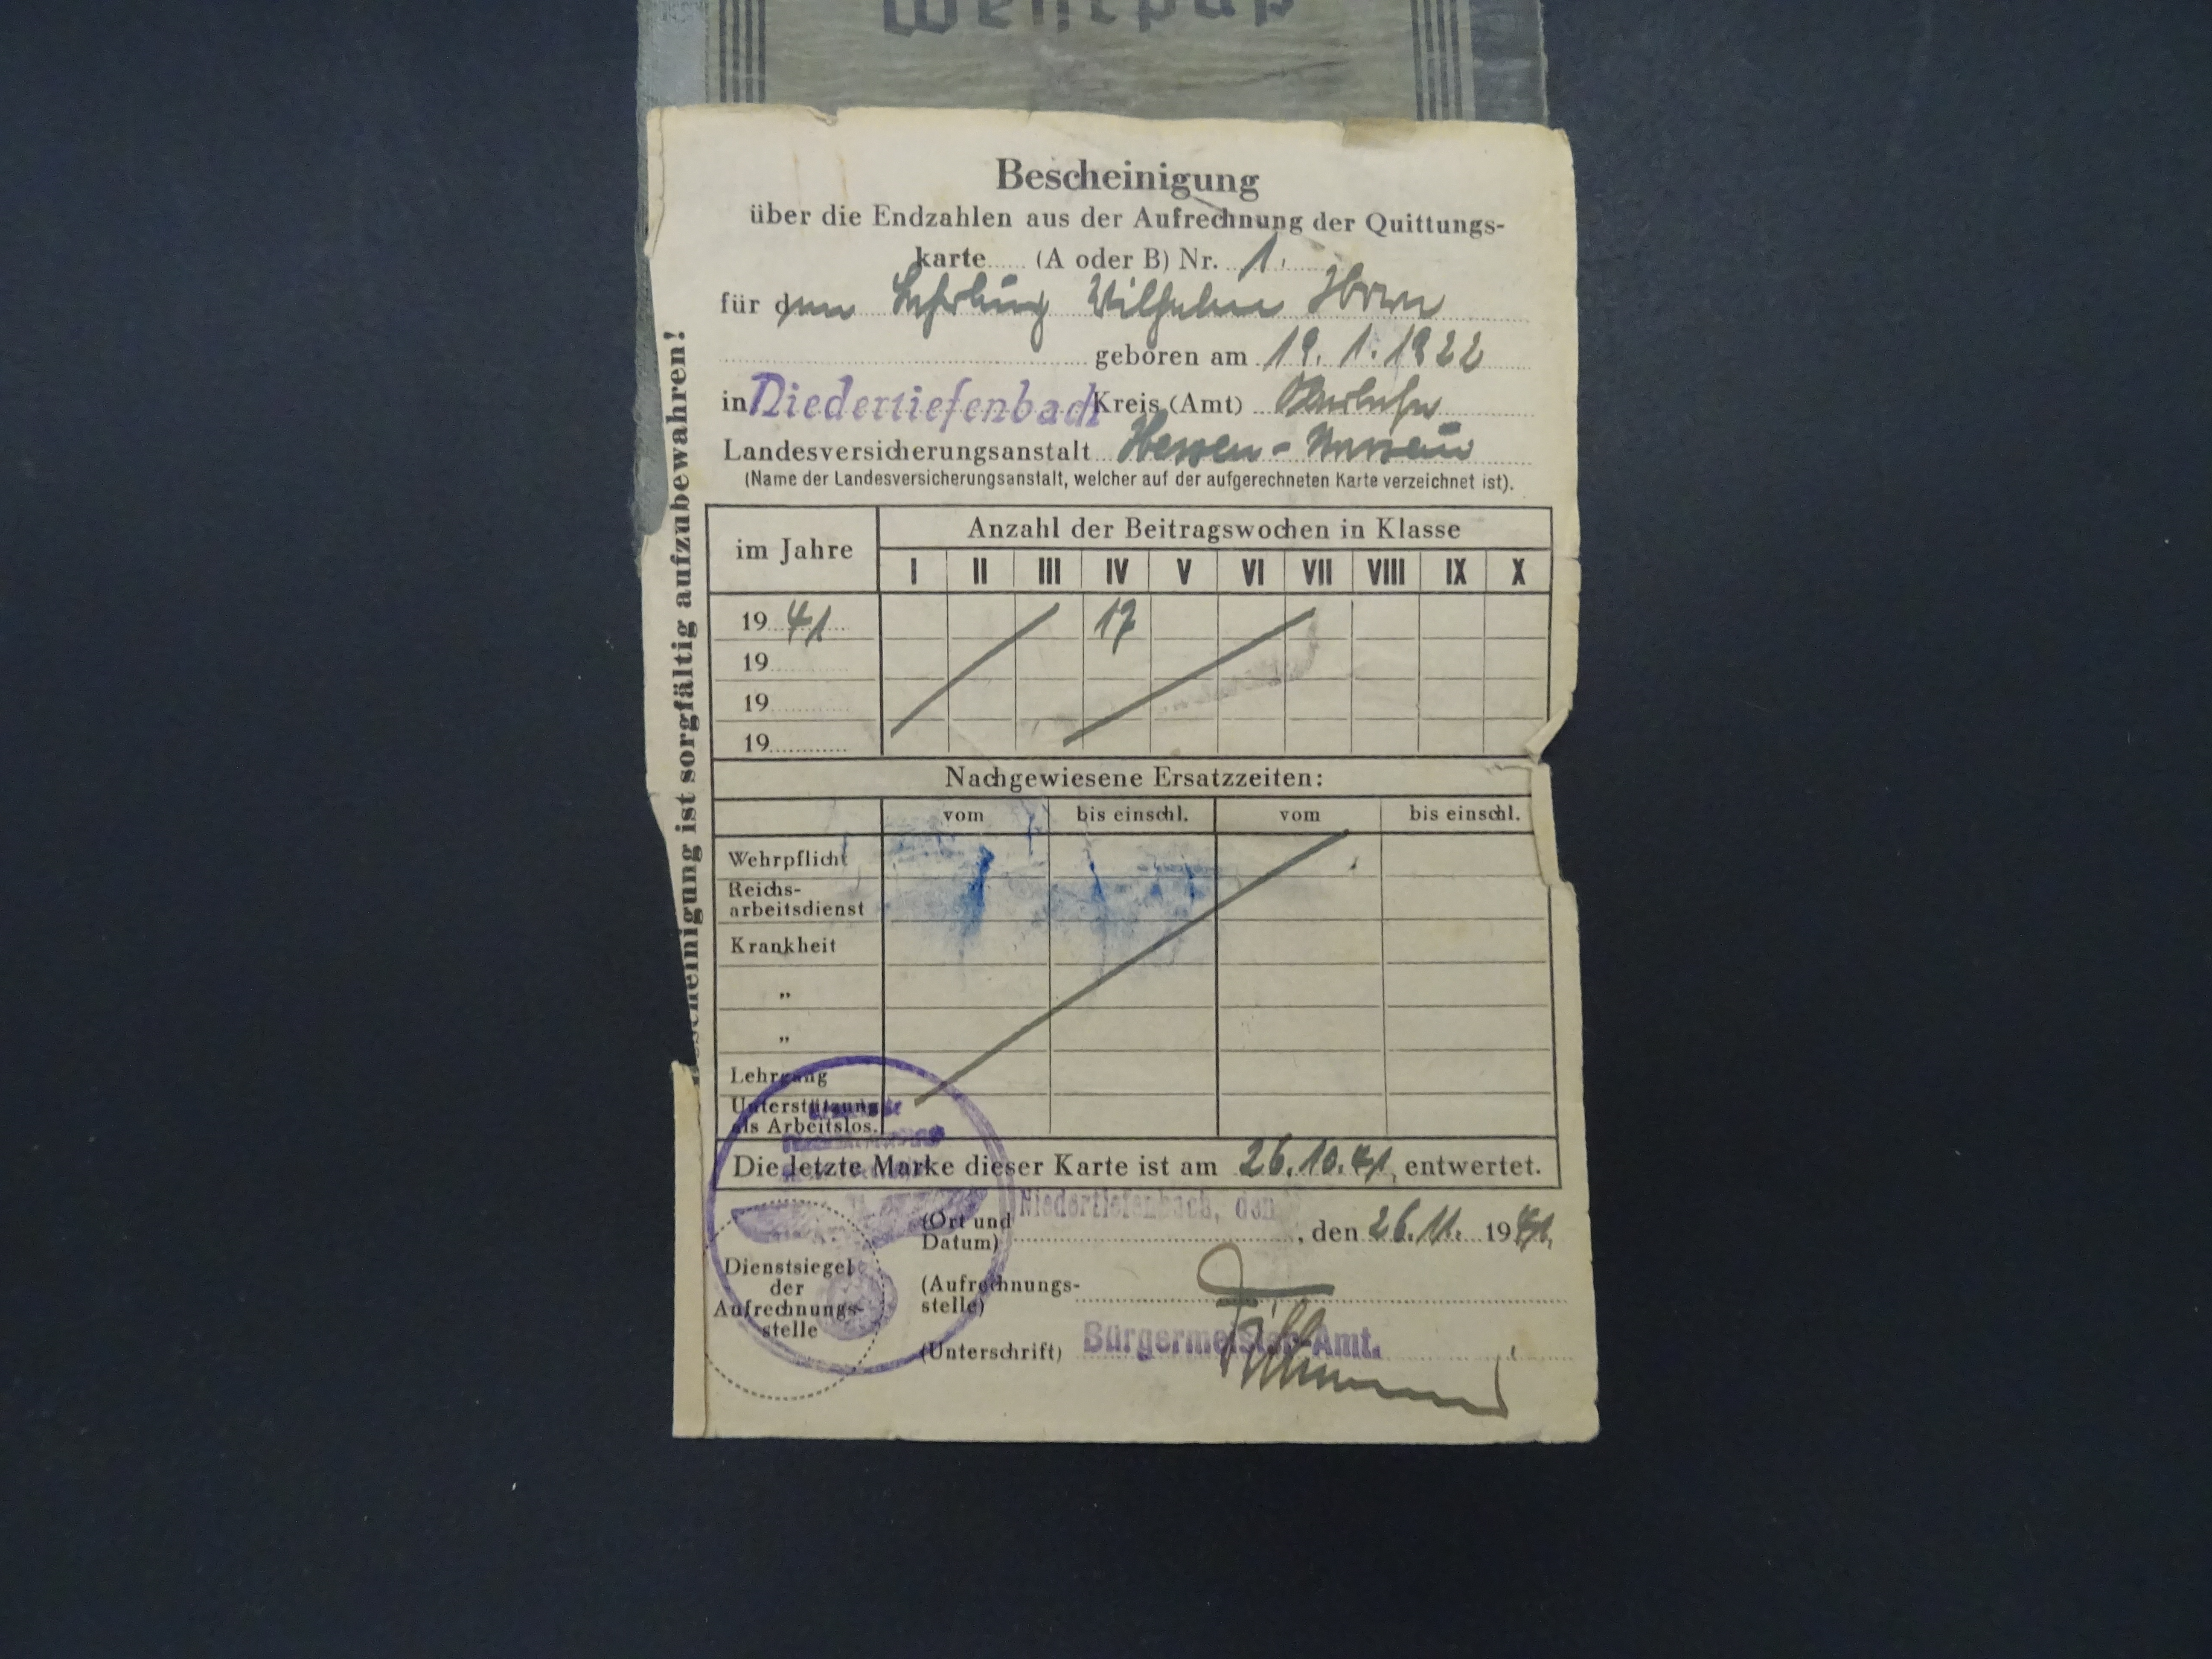 Wehrpaß
Bescheinigung
über die Endzahlen aus der Aufrechnung der Quittungs-
karte...... (A oder B) Nr. 1.
für den Lehrling Wilhelm
geboren am 19. 1. 1922
in Niedertiefenbach Kreis (Amt) Oberlahn
Landesversicherungsanstalt Hessen-Nassau
(Name der Landesversicherungsanstalt, welcher auf der aufgerechneten Karte verzeichnet ist).
im Jahre
Anzahl der Beitragswochen in Klasse
I II III IV V VI VII VIII IX X
19 41 17
19
19
19
Nachgewiesene Ersatzzeiten:
vom bis einschl. vom bis einschl.
Wehrpflicht
Reichs-
arbeitsdienst
Krankheit
„
„
Lehrgang
Unterstützung
als Arbeitslos.
Die letzte Marke dieser Karte ist am 26.10.41. entwertet.
(Ort und
Datum)
Niedertiefenbach, den
, den 26.11. 1941.
Dienstsiegel
der
Aufrechnungs-
stelle
(Aufrechnungs-
stelle)
(Unterschrift)
Bürgermeister-Amt.
Bescheinigung ist sorgfältig aufzubewahren!